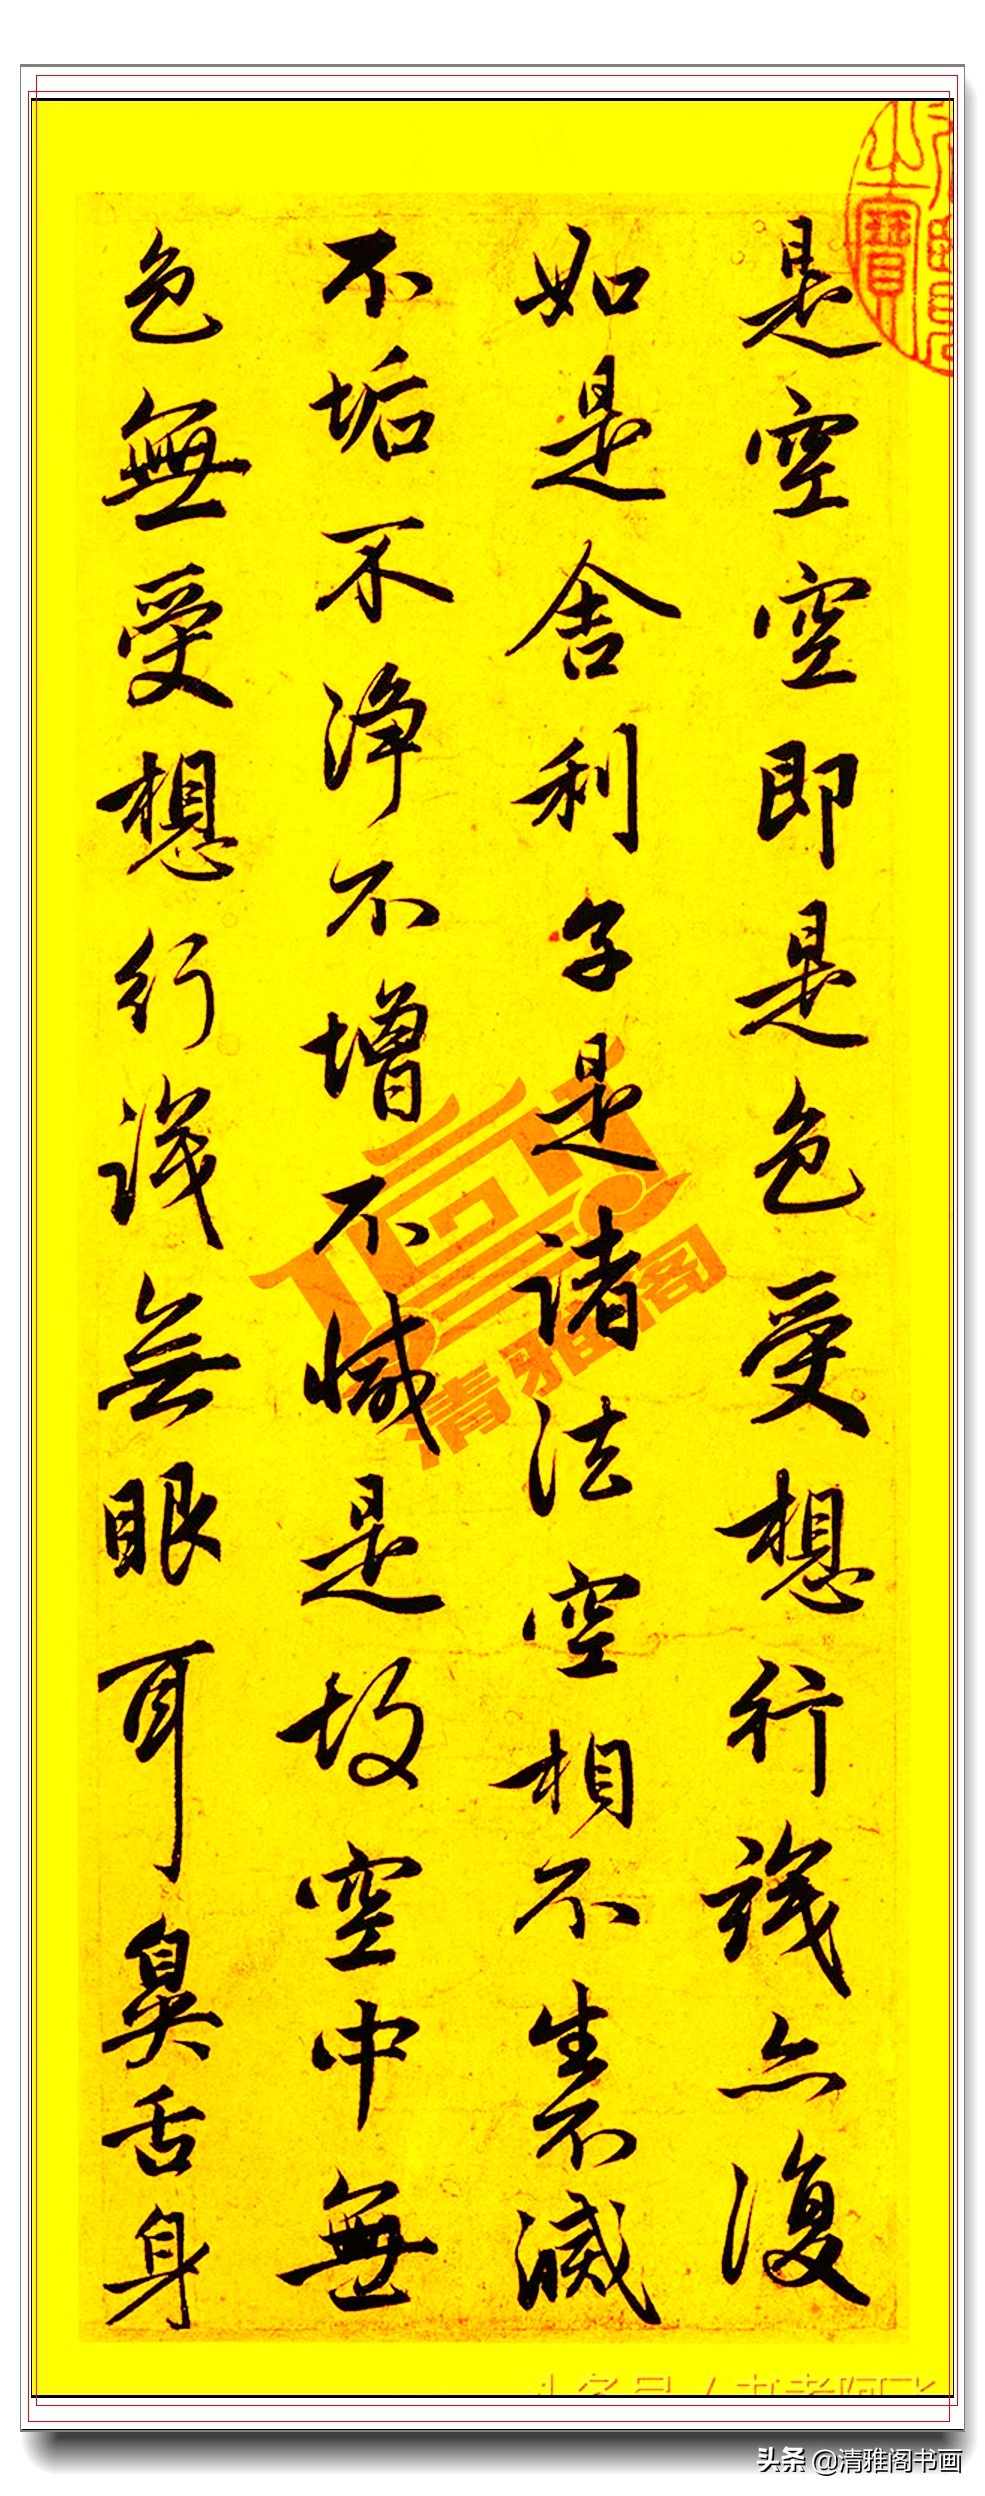 是空空即是色受想行識亦復
如是舍利子是諸法空相不生不滅
不垢不淨不增不減是故空中無
色無受想行識無眼耳鼻舌身
清雅阁
头条 @清雅阁书画